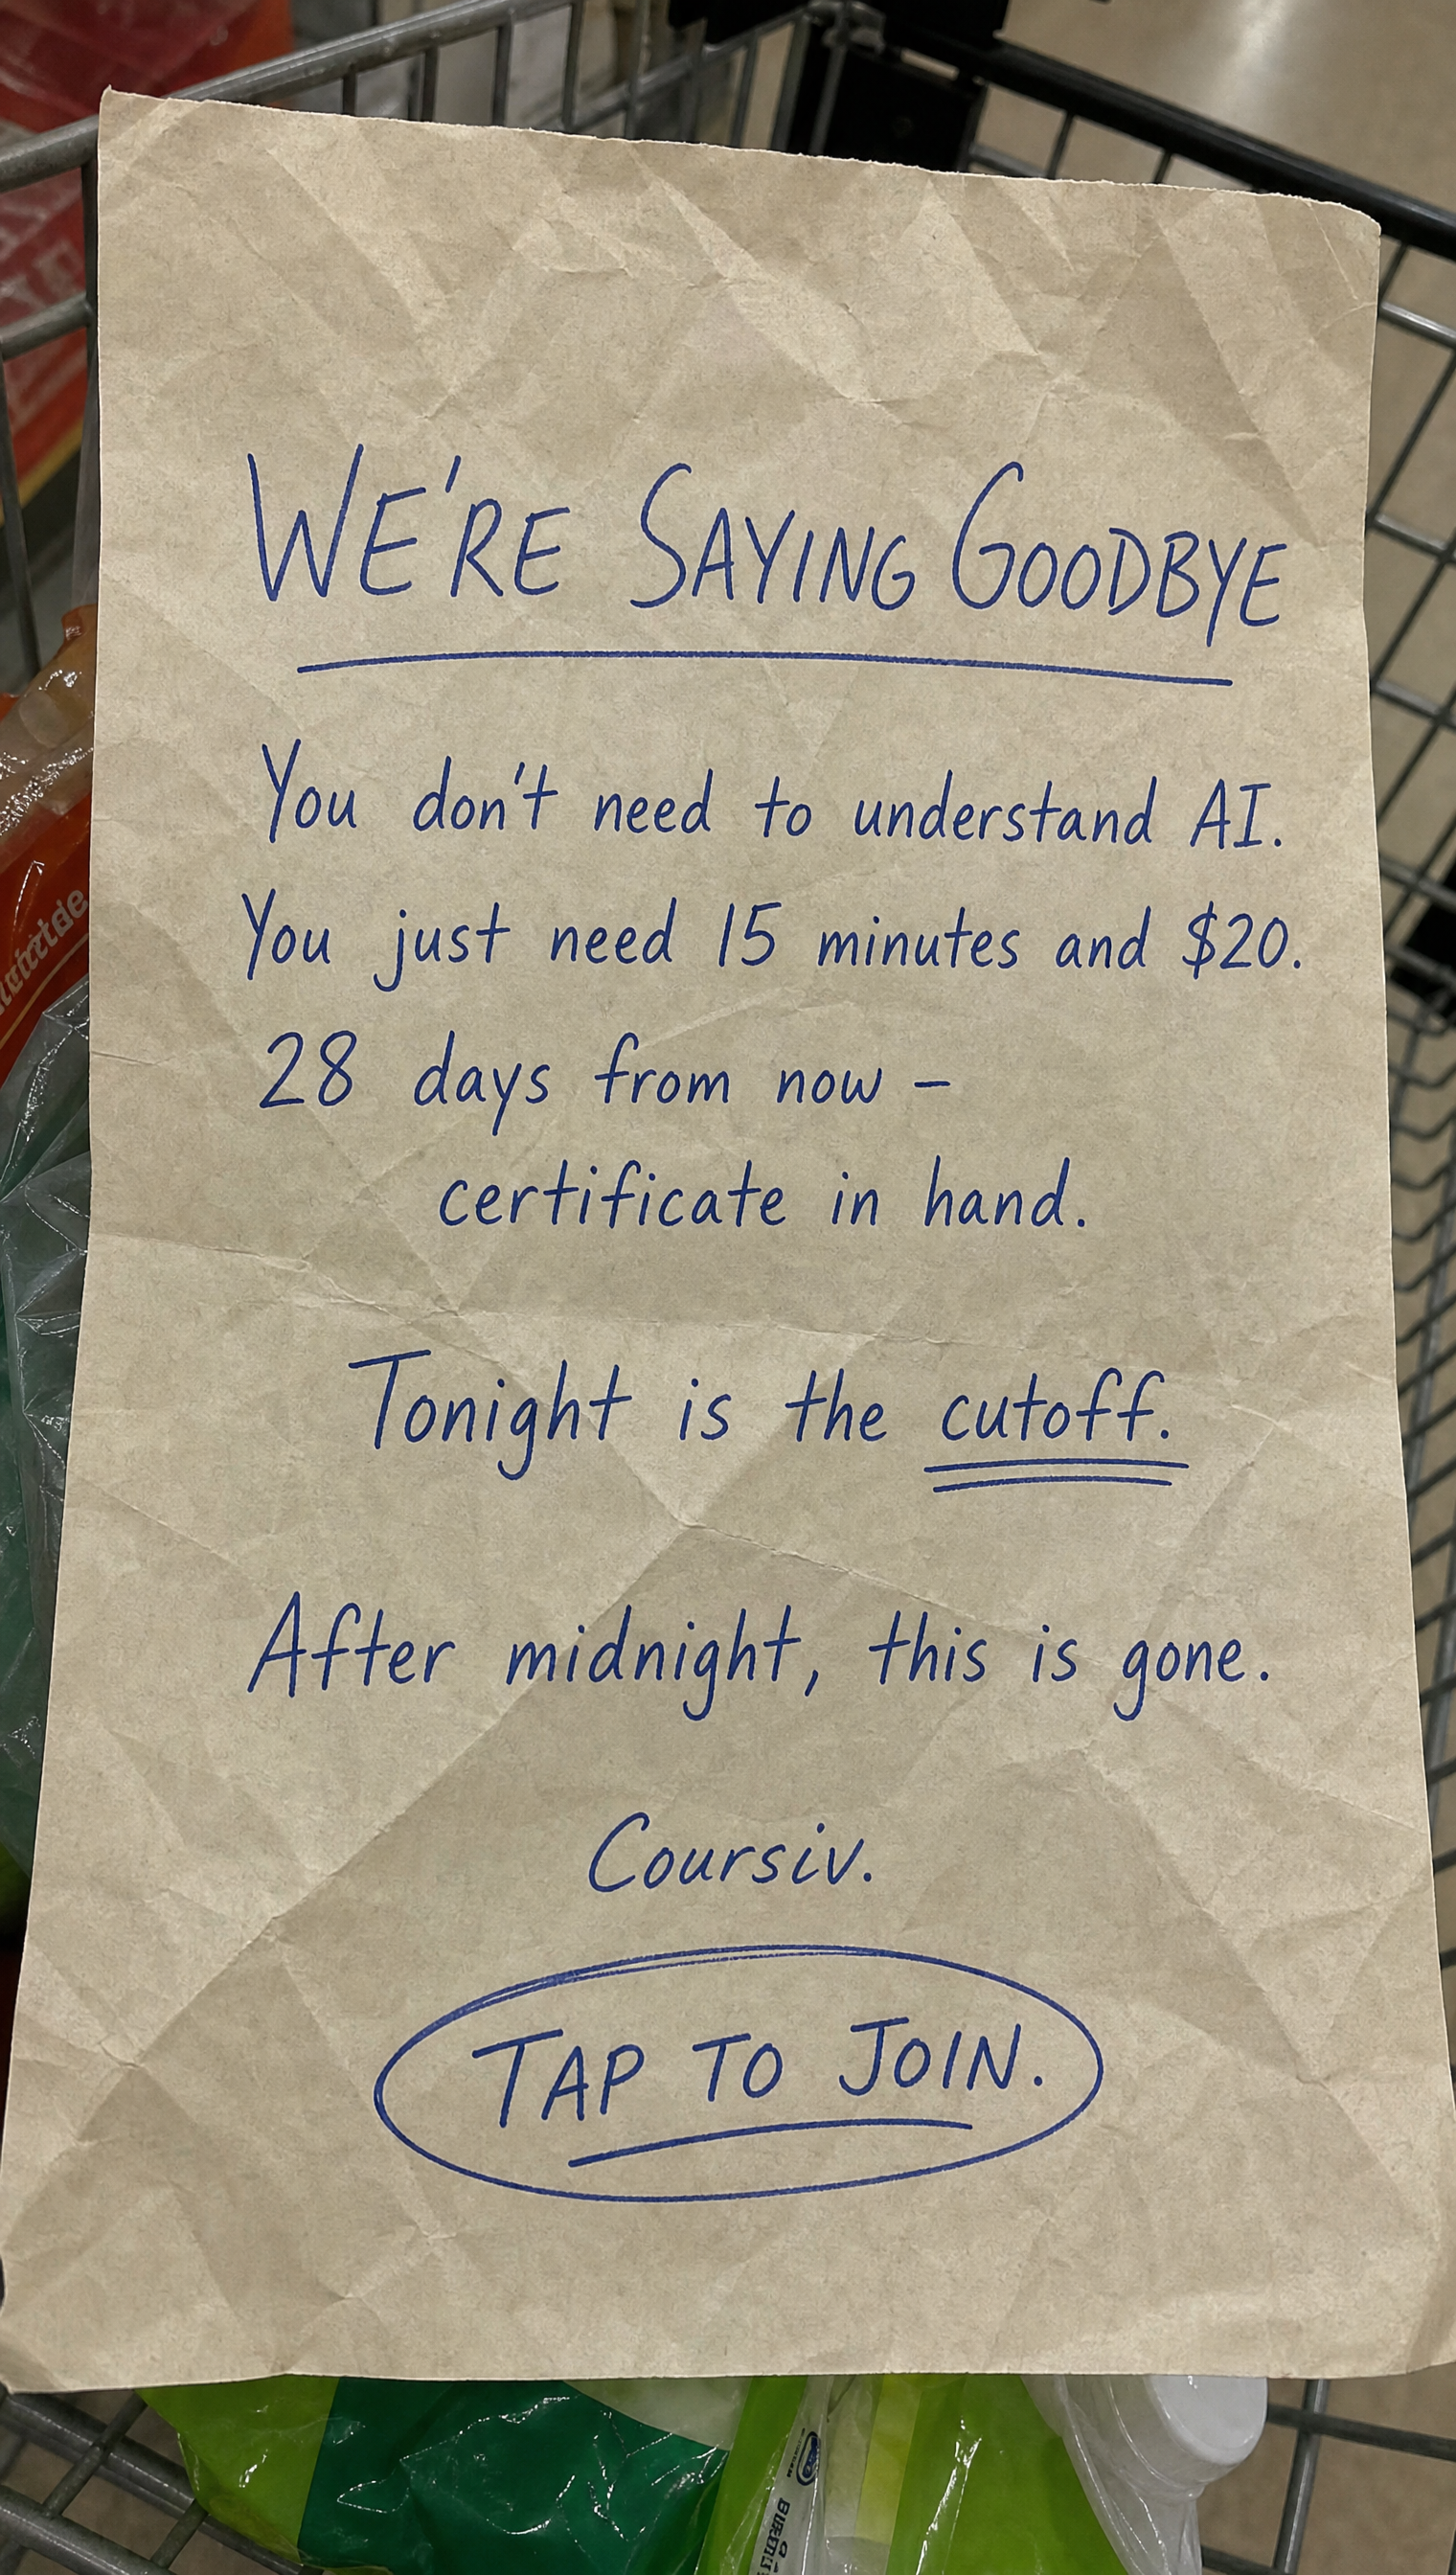 WE'RE SAYING GOODBYE
You don't need to understand AI.
You just need 15 minutes and $20.
28 days from now –
certificate in hand.
Tonight is the cutoff.
After midnight, this is gone.
Coursiv.
TAP TO JOIN.